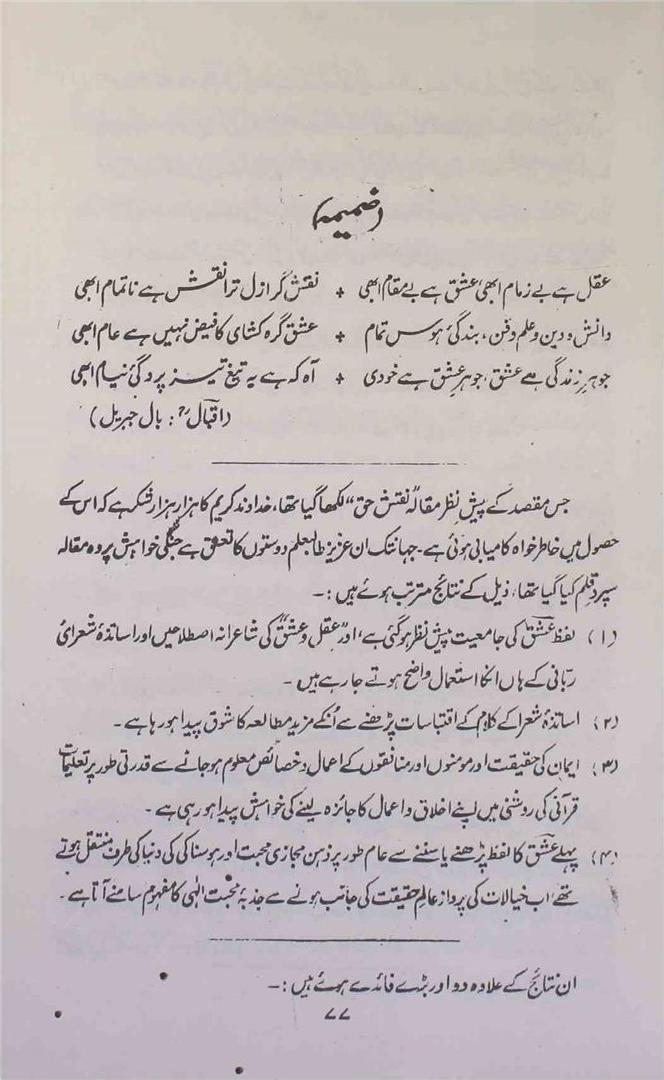 (ضمیمہ)
عقل ہے بے زمام ابھی عشق ہے بے مقام ابھی + نقش گر ازل ترا نقش ہے ناتمام ابھی
دانش و دین و علم و فن، بندگیٔ ہوس تمام + عشق گرہ کشای کا فیض نہیں ہے عام ابھی
جوہرِ زندگی ہے عشق، جوہرِ عشق ہے خودی + آہ کہ ہے یہ تیغ تیز پردگیٔ نیام ابھی
(اقبالؒ: بال جبریل)
جس مقصد کے پیش نظر مقالہ "نقش حق" لکھا گیا تھا، خداوند کریم کا ہزار ہزار شکر ہے کہ اس کے
حصول میں خاطر خواہ کامیابی ہوئی ہے۔ جہانتک ان عزیز طالبعلم دوستوں کا تعلق ہے جنکی خواہش پر وہ مقالہ
سپرد قلم کیا گیا تھا، ذیل کے نتائج مترتب ہوئے ہیں :۔
(۱) لفظ عشق کی جامعیت پیش نظر ہوگئی ہے، اور "عقل و عشق" کی شاعرانہ اصطلاحیں اور اساتذۂ شعرائ
ربّانی کے ہاں انکا استعمال واضح ہوتے جا رہے ہیں ۔
(۲) اساتذۂ شعرا کے کلام کے اقتباسات پڑھنے سے اُنکے مزید مطالعہ کا شوق پیدا ہو رہا ہے ۔
(۳) ایمان کی حقیقت اور مومنوں اور منافقوں کے اعمال و خصائص معلوم ہو جانے سے قدرتی طور پر تعلیمات
قرآنی کی روشنی میں اپنے اخلاق و اعمال کا جائزہ لینے کی خواہش پیدا ہو رہی ہے ۔
(۴) پہلے عشق کا لفظ پڑھنے یا سننے سے عام طور پر ذہن مجازی محبت اور ہوسناکی کی دنیا کی طرف منتقل ہوتے
تھے، اب خیالات کی پرواز عالم حقیقت کی جانب ہونے سے جذبۂ محبت الٰہی کا مفہوم سامنے آتا ہے ۔
ان نتائج کے علاوہ دو اور بڑے فائدے ہوئے ہیں :۔
۷۷